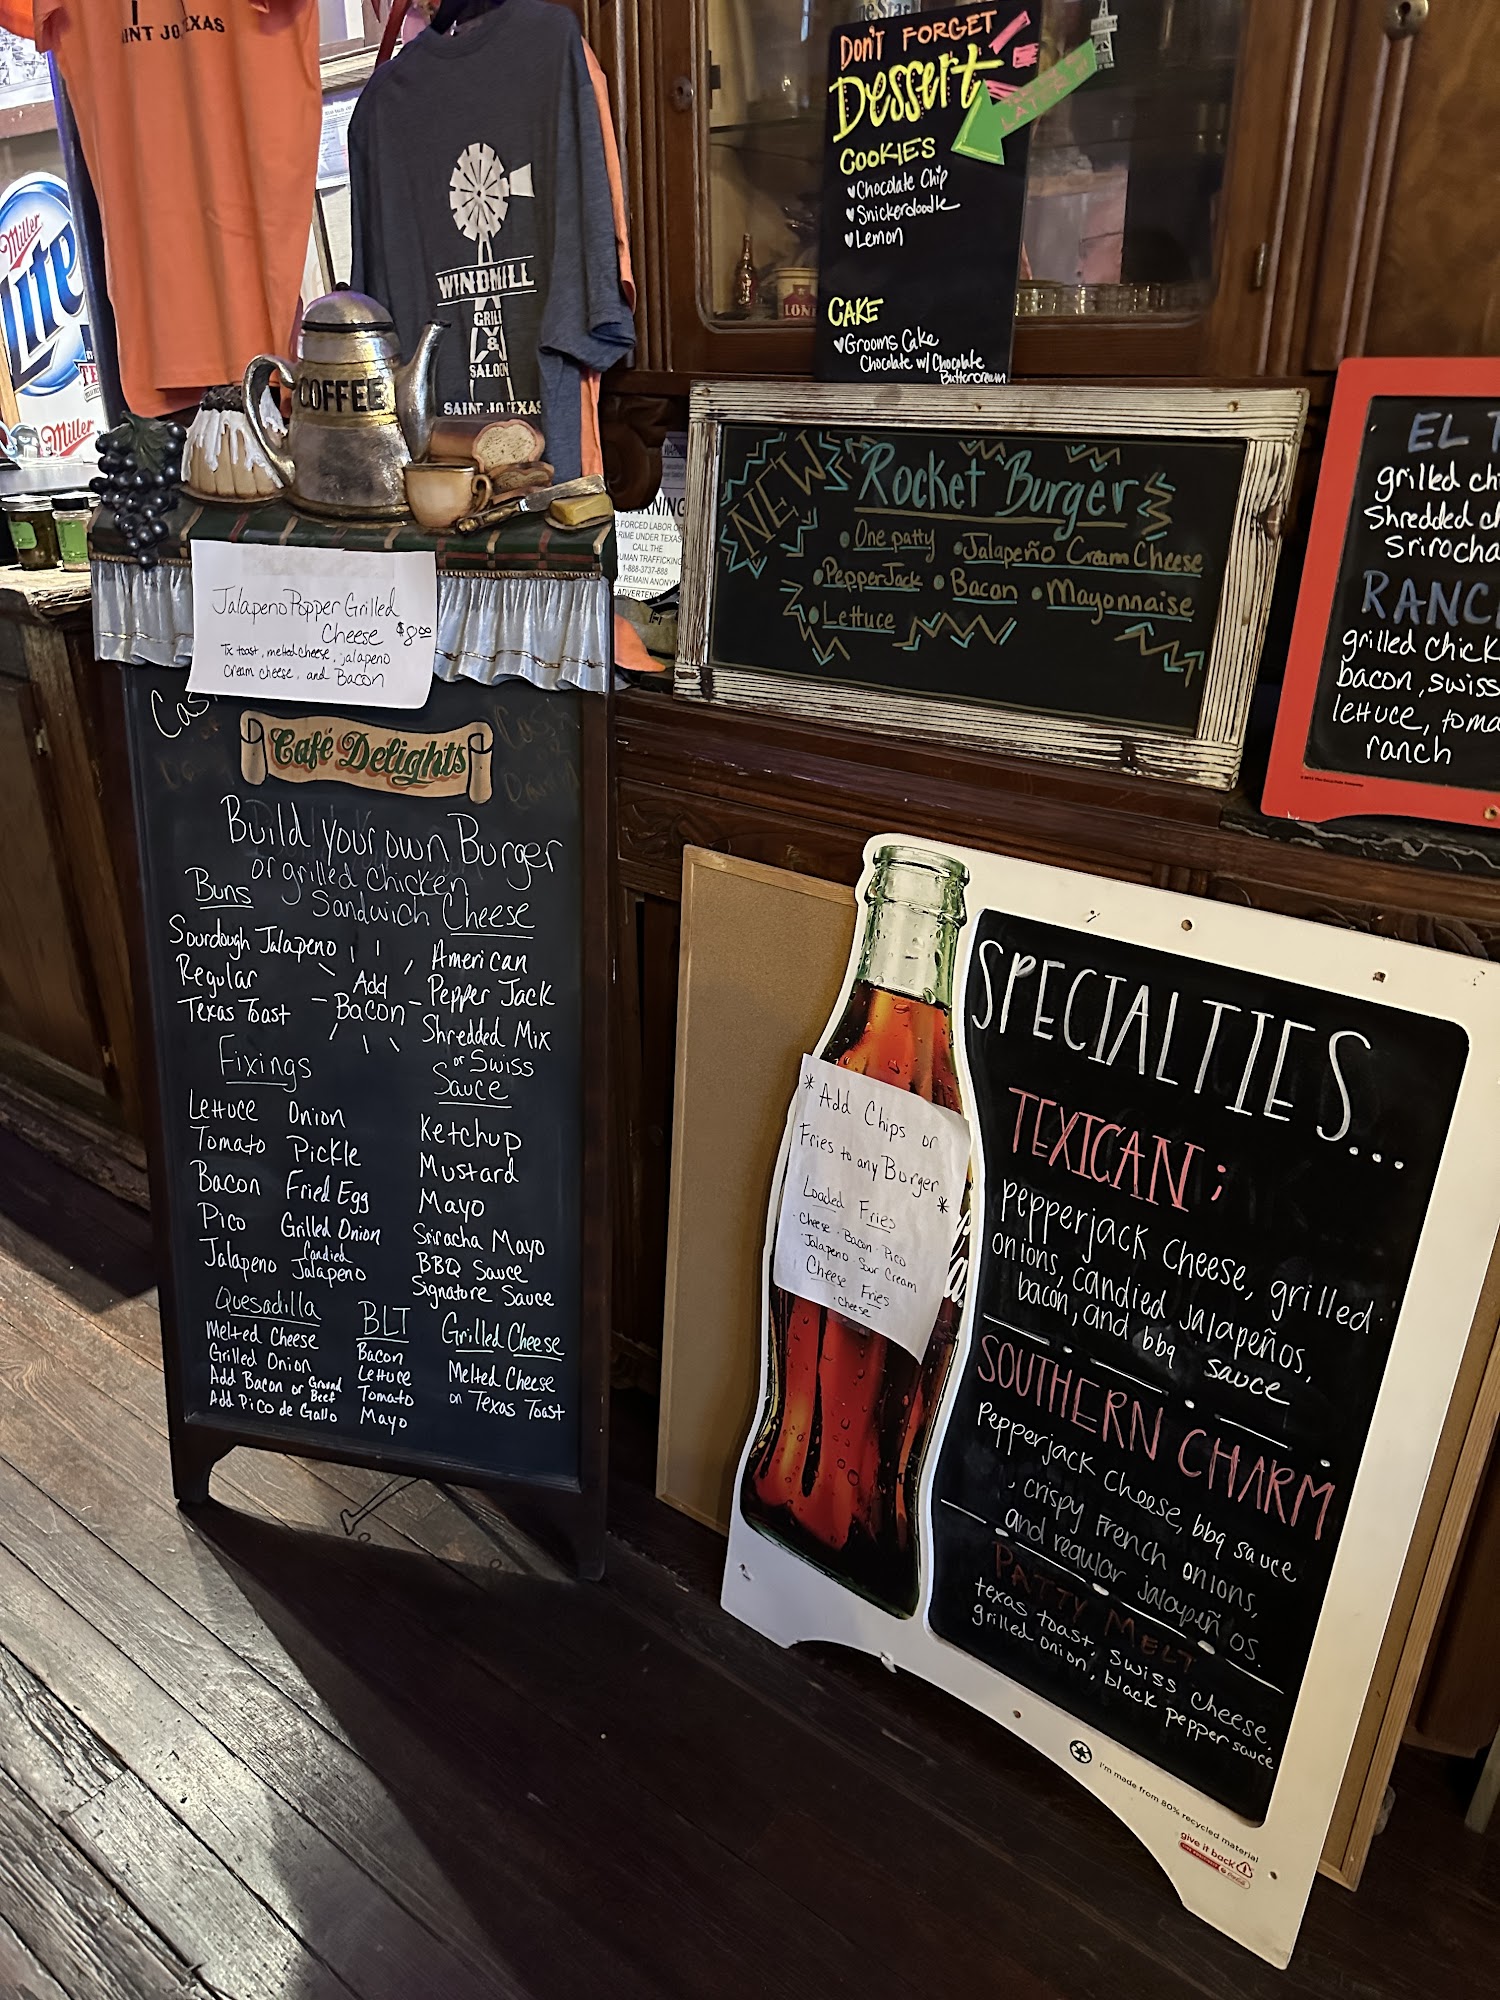 INT JO, EXAS
Miller
Lite
Miller
WINDMILL
GRILL
&
SALOON
SAINT JO, TEXAS
COFFEE
DON'T FORGET
Dessert
COOKIES
Chocolate Chip
Snickerdoodle
Lemon
CAKE
Grooms Cake
Chocolate w/ Chocolate
Buttercream
NEW
Rocket Burger
One patty Jalapeño Cream Cheese
PepperJack Bacon Mayonnaise
Lettuce
EL T
grilled ch
Shredded ch
Srirocha
RANC
grilled chick
bacon, swiss
lettuce, toma
ranch
ARNING
FORCED LABOR OR
RIME UNDER TEXAS
CALL THE
UMAN TRAFFICKING
1-888-3737-888
Y REMAIN ANONYM
ADVERTENC
Jalapeno Popper Grilled
Cheese $8.00
Tx toast, melted cheese, jalapeno
Cream cheese, and Bacon
Cas
Cash
Café Delights
Build your own Burger
or grilled chicken
Sandwich
Buns
Sourdough Jalapeno
Regular
Texas Toast
Add
Bacon
Cheese
American
Pepper Jack
Shredded Mix
or Swiss
Fixings
Lettuce Onion
Tomato Pickle
Bacon Fried Egg
Pico Grilled Onion
Jalapeno Candied Jalapeno
Sauce
Ketchup
Mustard
Mayo
Sriracha Mayo
BBQ Sauce
Signature Sauce
Quesadilla
Melted Cheese
Grilled Onion
Add Bacon or Ground Beef
Add Pico de Gallo
BLT
Bacon
Lettuce
Tomato
Mayo
Grilled Cheese
Melted Cheese
on Texas Toast
* Add Chips or
Fries to any Burger *
Loaded Fries
Cheese · Bacon · Pico
· Jalapeno · Sour Cream
Cheese Fries
· Cheese
SPECIALTIES...
TEXICAN;
pepperjack cheese, grilled
onions, candied jalapeños,
bacon, and bbq sauce
SOUTHERN CHARM
Pepperjack cheese, bbq sauce
, crispy French onions,
and regular jalapeños.
PATTY MELT
texas toast, swiss cheese,
grilled onion, black pepper sauce
I'm made from 80% recycled material
give it back